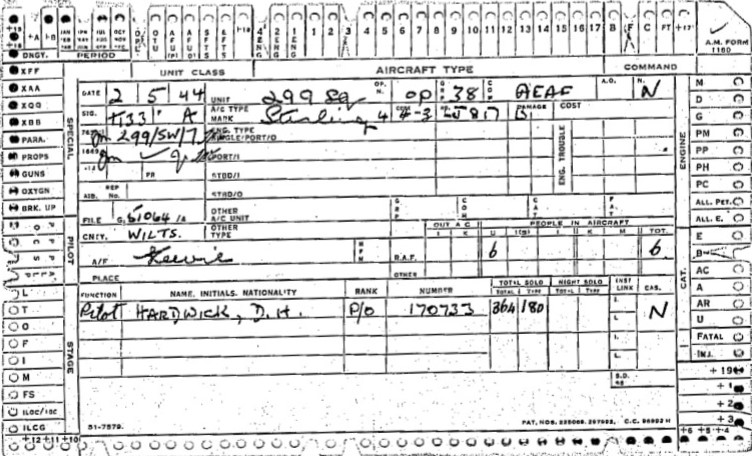 +A +B JAN APR JUL OCT OTU 4 ENG 2 ENG 1 ENG 1 2 3 4 5 6 7 8 9 10 11 12 13 14 15 16 17 B F C FT +12
DNGY. PERIOD A.M. FORM 1180
XFF UNIT CLASS AIRCRAFT TYPE COMMAND
XAA DATE 2 5 44 UNIT 299 Sq OP. N. OP GRP 38 COM AEAF A.O. N. N M
XQQ SIG. A A/C TYPE MARK Stirling 4 DAMAGE B COST D
XBB SPECIAL 299/SW/7 ENG. TYPE G
PARA. ENG. TROUBLE ENGINE PM
PROPS PORT/I PP
GUNS FR STBD/I PH
OXYGN AIB. REP No. STBD/O PC
BRK. UP GRP COM CAT FAT ALL. PET.
FILE G.51064/A OTHER A/C UNIT OUT A C PEOPLE IN AIRCRAFT ALL. E.
PILOT CNTY. WILTS. OTHER TYPE I K U I K M TOT. E
A/F Keevil R.A.F. 6 6 B
PLACE OTHER CAT. AC
L FUNCTION NAME, INITIALS, NATIONALITY RANK NUMBER TOTAL SOLO TOTAL TYPE NIGHT SOLO TOTAL TYPE INST LINK CAS. A
T Pilot HARDWICK, D. H. P/O 170733 364 180 I. N AR
O L. U
F I. FATAL
I STAGE L. INJ.
M S.D. 98 +19
FS +1
ILOC/IOC +2
ILCG 51-7579. PAT. NOS. C.C. +3
+12 +11 +10 +6 +5 +4